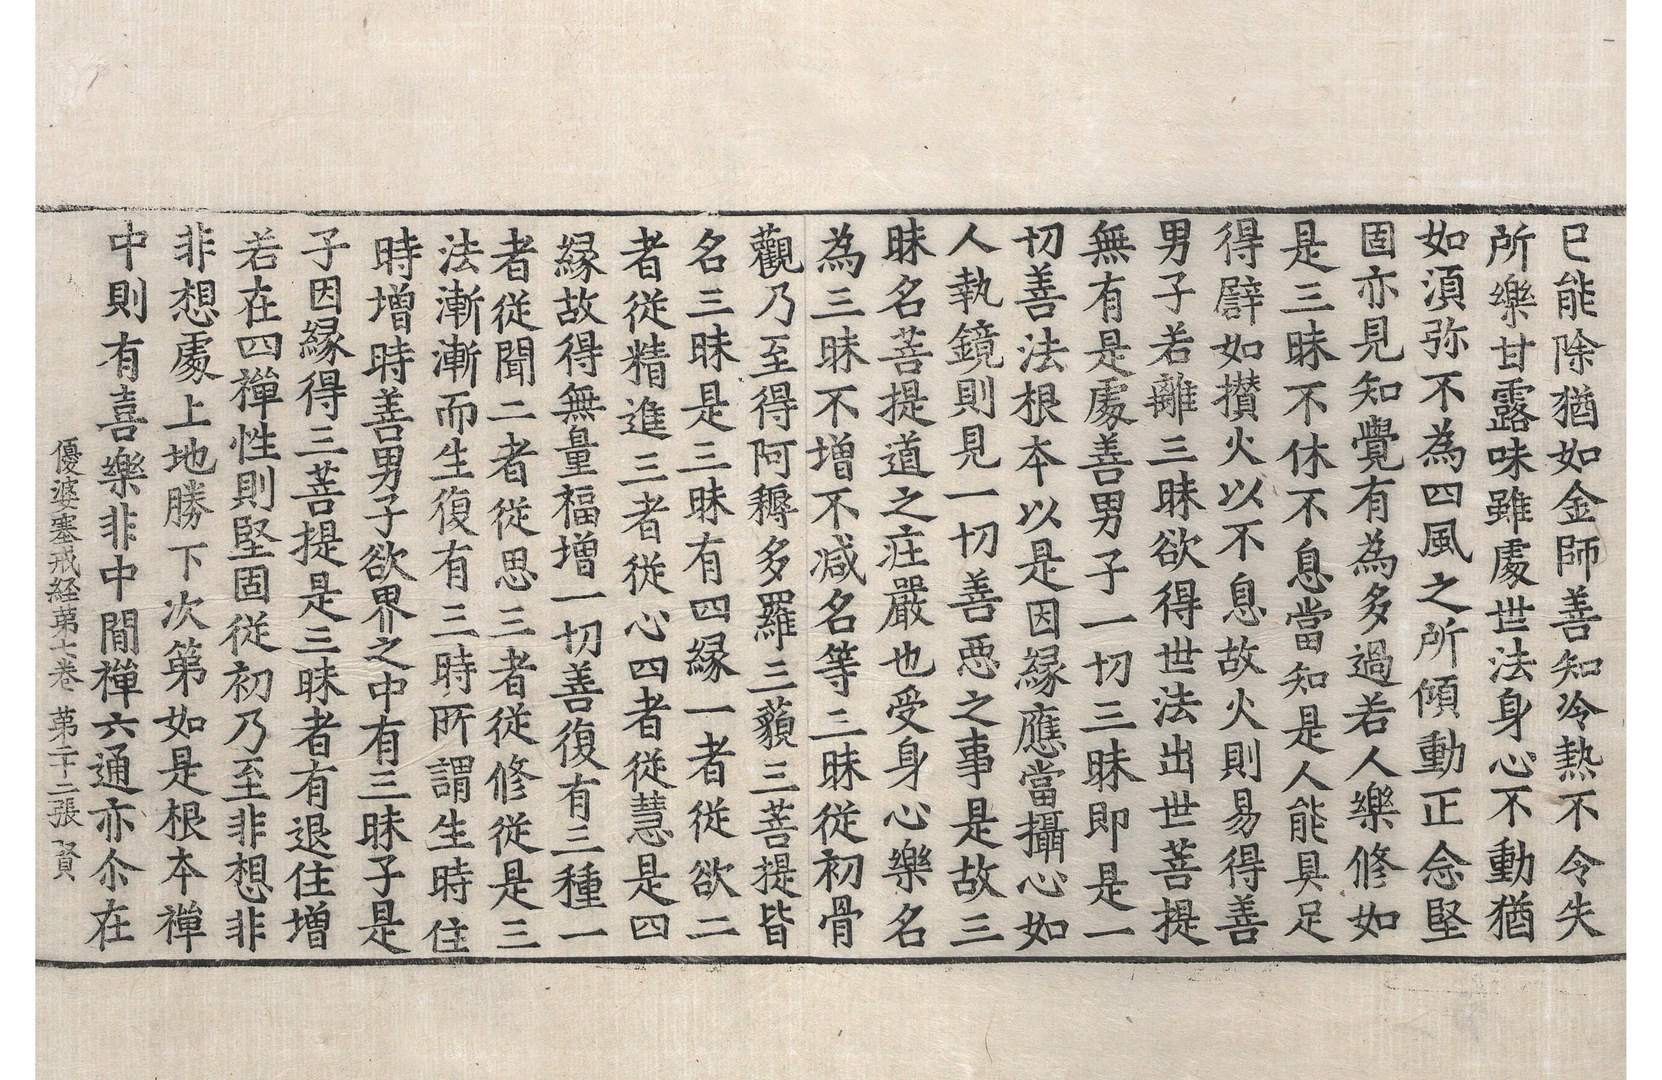 已能除猶如金師善知冷熱不令失
所樂甘露味雖處世法身心不動猶
如須弥不為四風之所傾動正念堅
固亦見知覺有為多過若人樂修如
是三昧不休不息當知是人能具足
得譬如攅火以不息故火則易得善
男子若離三昧欲得世法出世菩提
無有是處善男子一切三昧即是一
切善法根本以是因縁應當攝心如
人執鏡則見一切善惡之事是故三
昧名菩提道之庄嚴也受身心樂名
為三昧不增不減名等三昧從初骨
觀乃至得阿耨多羅三藐三菩提皆
名三昧是三昧有四縁一者從欲二
者從精進三者從心四者從慧是四
縁故得無量福增一切善復有三種一
者從聞二者從思三者從修從是三
法漸漸而生復有三時所謂生時住
時增時善男子欲界之中有三昧子是
子因縁得三菩提是三昧者有退住增
若在四禪性則堅固從初乃至非想非
非想處上地勝下次第如是根本禪
中則有喜樂非中間禪六通亦尒在
優婆塞戒経苐七卷 苐二十二張 賢